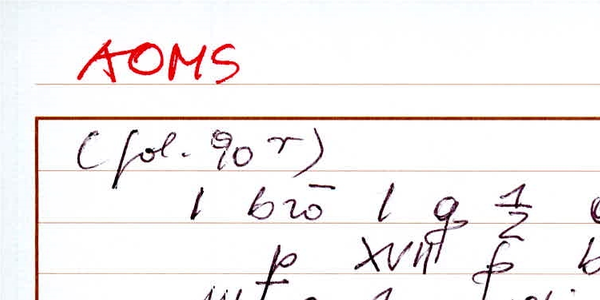 AOMS
(fol. 90 r)
1 brō 1 q 1/2
p XVIII p b